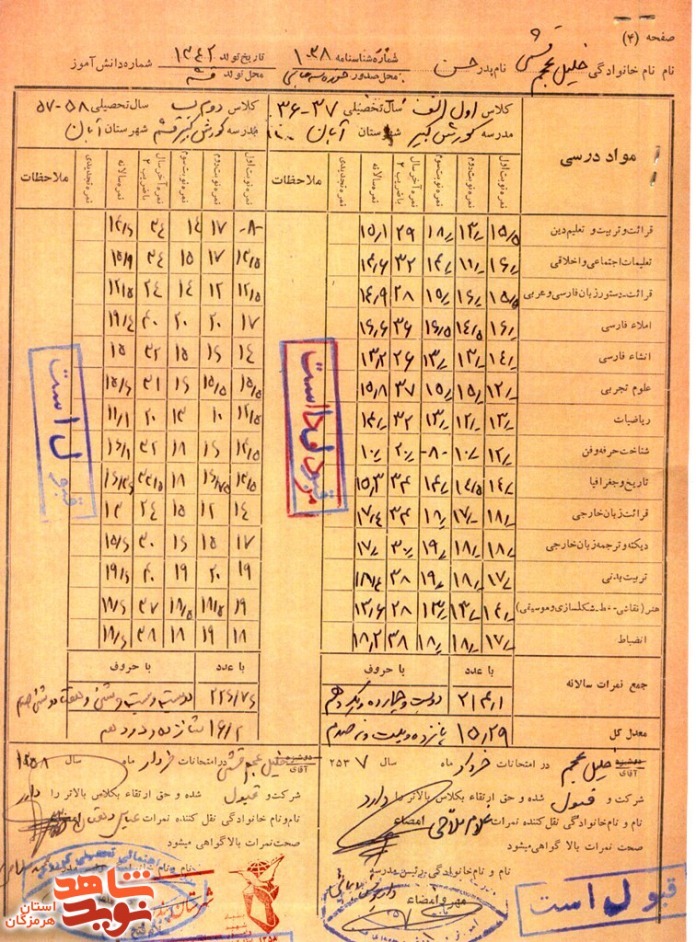 صفحه (۴)
نام نام خانوادگی خلیل عجم قشمی نام پدر حسن شماره شناسنامه ۱۰۳۸ تاریخ تولد ۱۳۴۲ شماره دانش آموز
محل صدور محل تولد قشم
مواد درسی
کلاس اول الف سال تحصیلی ۳۷-۳۶
مدرسه کورش کبیر شهرستان آبان
کلاس دوم ب سال تحصیلی ۵۸-۵۷
مدرسه کورش کبیر قشم شهرستان آبان
نمره نوبت اول نمره نوبت دوم نمره نوبت سوم نمره آخر سال با ضریب ۲ نمره سالانه نمره تجدیدی ملاحظات
نمره نوبت اول نمره نوبت دوم نمره نوبت سوم نمره آخر سال با ضریب ۲ نمره سالانه نمره تجدیدی ملاحظات
قرائت و تربیت و تعلیم دین ۱۵/۵ ۱۳/ ۱۸/ ۲۹ ۱۵/۱ -۸- ۱۷ ۱۴ ۳۴
تعلیمات اجتماعی و اخلاقی ۱۶/ ۱۱/ ۱۴/ ۳۲ ۱۴/۶ ۱۷ ۱۵ ۳۴
قرائت، دستور زبان فارسی و عربی ۱۵/۵ ۱۶/ ۱۵/ ۲۸ ۱۴/۹ ۱۲/۵ ۱۲ ۱۴ ۲۴ ۱۲/۵
املاء فارسی ۱۶/ ۱۴/۵ ۱۶/۵ ۳۶ ۱۶/۶ ۱۷ ۲۰ ۲۰ ۴۰ ۱۹/۴
انشاء فارسی ۱۴/ ۱۳/ ۱۳/ ۲۶ ۱۳/۲ ۱۴ ۱۶ ۱۵ ۳۲ ۱۵
علوم تجربی ۱۲/ ۱۵/ ۱۵/ ۳۷ ۱۵/۸ ۱۵/۵ ۱۵/۵ ۱۶ ۳۱
ریاضیات ۱۳/ ۱۲/ ۱۳/ ۳۲ ۱۴/ ۱۲/۵ ۱۰ ۱۳ ۲۰ ۱۱/۱
شناخت حرفه و فن ۱۲/ ۱۰/ -۸- ۲۰/ ۱۰/ ۱۲/۵ ۱۶ ۱۸ ۳۲
تاریخ و جغرافیا ۱۴/ ۱۴/۵ ۱۴/ ۳۴ ۱۵/۳ ۱۴/۵ ۱۸
قرائت زبان خارجی ۱۸/ ۱۷/ ۳۴ ۱۷/۴ ۱۴ ۱۲ ۱۵ ۲۴ ۱۳
دیکته و ترجمه زبان خارجی ۱۸/ ۱۸/ ۱۹/ ۳۰/ ۱۷/ ۱۷ ۱۵ ۱۶ ۳۰ ۱۵/۶
تربیت بدنی ۱۷/ ۱۸/ ۱۹/ ۳۸ ۱۸/۴ ۱۹ ۲۰ ۱۹ ۴۰ ۱۹/۶
هنر (نقاشی - خط - شکلسازی و موسیقی) ۱۴/ ۱۳/ ۱۳/ ۲۸ ۱۳/۶ ۱۹ ۱۸/۵ ۱۸/۵ ۳۷
انضباط ۱۷/ ۱۸/ ۱۸/ ۳۸ ۱۸/۲ ۱۸ ۱۹ ۱۸ ۳۸ ۱۸/۶
با عدد با حروف با عدد با حروف
جمع نمرات سالانه ۲۱۴/۱ دویست و چهارده و یک دهم ۲۲۶/۷۶
معدل کل ۱۵/۲۹ پانزده و بیست و نه صدم ۱۶/۲ شانزده و دو دهم
دوشیزه آقای خلیل عجم در امتحانات خرداد ماه سال ۲۵۳۷
شرکت و قبول شده و حق ارتقاء بکلاس بالاتر را دارد
نام و نام خانوادگی نقل کننده نمرات غلام ملاحی امضاء
صحت نمرات بالا گواهی میشود
نام و نام خانوادگی رئیس مدرسه
مهر و امضاء
دوشیزه آقای خلیل عجم قشمی در امتحانات خرداد ماه سال ۱۳۵۸
شرکت و قبول شده و حق ارتقاء بکلاس بالاتر را دارد
نام و نام خانوادگی نقل کننده نمرات عباس امضاء
صحت نمرات بالا گواهی میشود
قبول است
قبول است
قبول است
نوید شاهد
استان هرمزگان